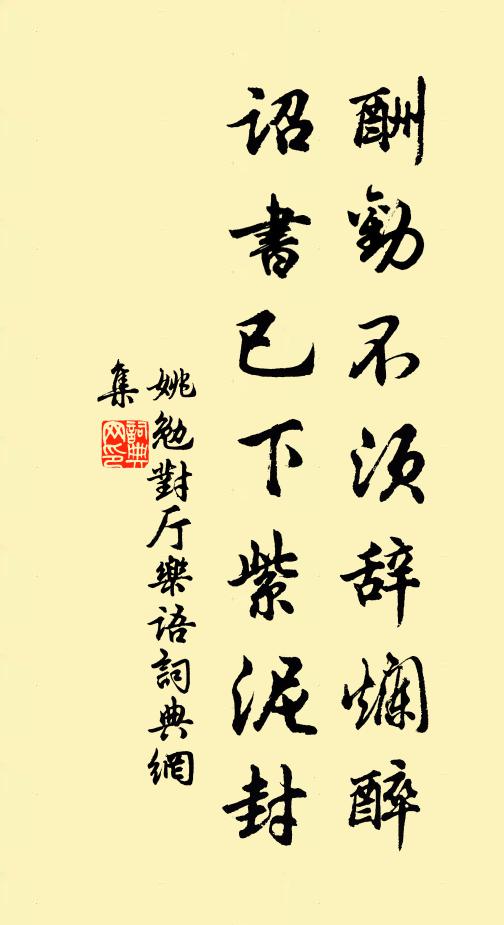 酬勸不須辞爛醉
詔書已下紫泥封
姚勉對厅樂语詞典網
集
詞典网印